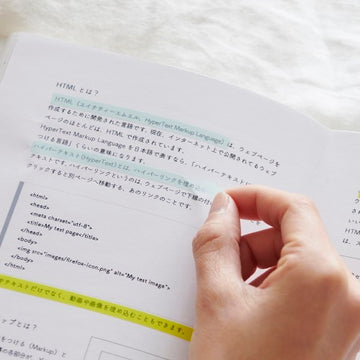 HTML とは？
HTML（エイチティーエムエル、HyperText Markup Language）は、ウェブページを
作成するために開発された言語です。現在、インターネット上で公開されてるウェブ
ページのほとんどは、HTML で作成されています。
HyperText Markup Language を日本語で表すなら、「ハイパーテキストに
つける言語」くらいの意味になります。
ハイパーテキスト(HyperText)とは、ハイパーリンクを埋め込
テキストです。ハイパーリンクというのは、ウェブページで下線の
クリックすると別ページへ移動する、あのリンクのことです。
<html>
<head>
<meta charset="utf-8">
<title>My test page</title>
</head>
<body>
<img src="images/firefox-icon.png" alt="My test image">
</body>
</html>
テキストだけでなく、動画や画像を埋め込むこともできます。
ップとは？
をつける(Markup) と